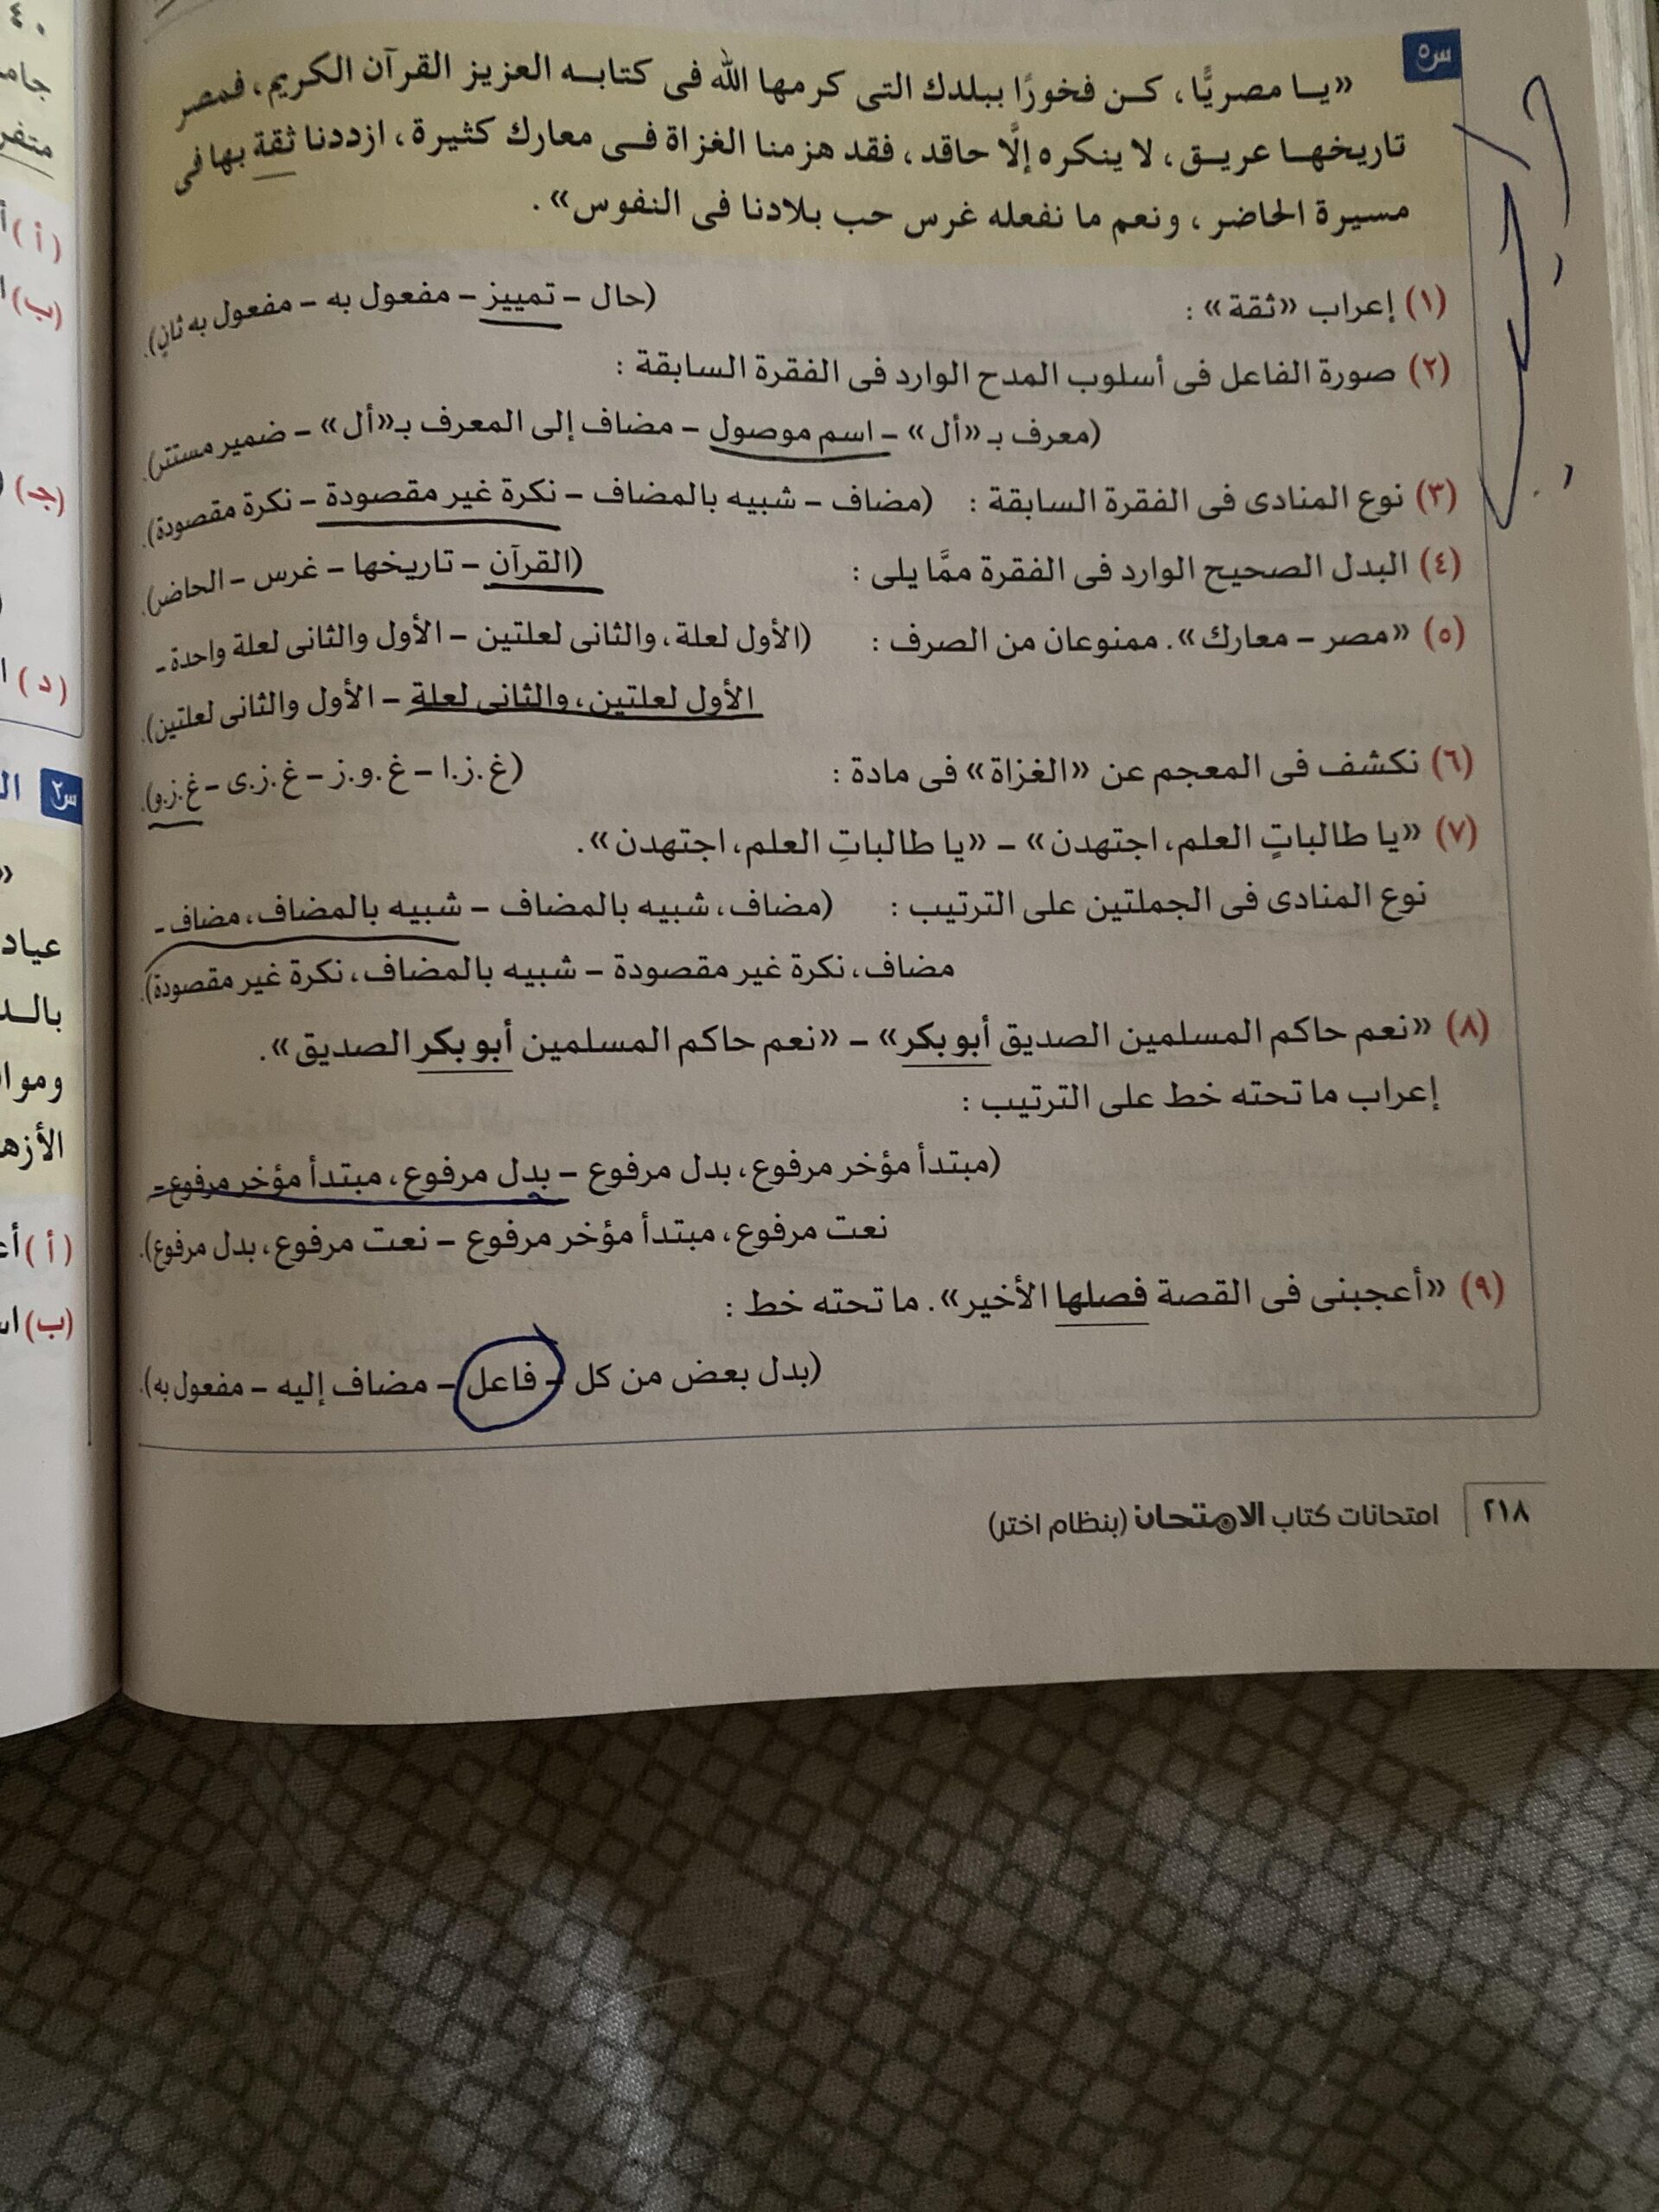 س٥
«يا مصريًّا، كن فخورًا ببلدك التى كرمها الله فى كتابه العزيز القرآن الكريم، فمصر
تاريخها عريق، لا ينكره إلَّا حاقد، فقد هزمنا الغزاة فى معارك كثيرة، ازددنا ثقة بها فى
مسيرة الحاضر، ونعم ما نفعله غرس حب بلادنا فى النفوس».
(١) إعراب «ثقة» : (حال – تمييز – مفعول به – مفعول به ثانٍ).
(٢) صورة الفاعل فى أسلوب المدح الوارد فى الفقرة السابقة :
(معرف بـ «أل» – اسم موصول – مضاف إلى المعرف بـ«أل» – ضمير مستتر).
(٣) نوع المنادى فى الفقرة السابقة : (مضاف – شبيه بالمضاف – نكرة غير مقصودة – نكرة مقصودة).
(٤) البدل الصحيح الوارد فى الفقرة ممَّا يلى : (القرآن – تاريخها – غرس – الحاضر).
(٥) «مصر – معارك». ممنوعان من الصرف : (الأول لعلة، والثانى لعلتين – الأول والثانى لعلة واحدة –
الأول لعلتين، والثانى لعلة – الأول والثانى لعلتين).
(٦) نكشف فى المعجم عن «الغزاة» فى مادة : (غ.ز.ا – غ.و.ز – غ.ز.ى – غ.ز.و).
(٧) «يا طالباتٍ العلم، اجتهدن» – «يا طالباتِ العلم، اجتهدن».
نوع المنادى فى الجملتين على الترتيب : (مضاف، شبيه بالمضاف – شبيه بالمضاف، مضاف –
مضاف، نكرة غير مقصودة – شبيه بالمضاف، نكرة غير مقصودة).
(٨) «نعم حاكم المسلمين الصديق أبو بكر» – «نعم حاكم المسلمين أبو بكر الصديق».
إعراب ما تحته خط على الترتيب :
(مبتدأ مؤخر مرفوع، بدل مرفوع – بدل مرفوع، مبتدأ مؤخر مرفوع –
نعت مرفوع، مبتدأ مؤخر مرفوع – نعت مرفوع، بدل مرفوع).
(٩) «أعجبنى فى القصة فصلها الأخير». ما تحته خط :
(بدل بعض من كل – فاعل – مضاف إليه – مفعول به).
٢١٨ امتحانات كتاب الامتحان (بنظام اختر)
(أ)
(ب)
(جـ)
(د)
س٢
(أ)
(ب)